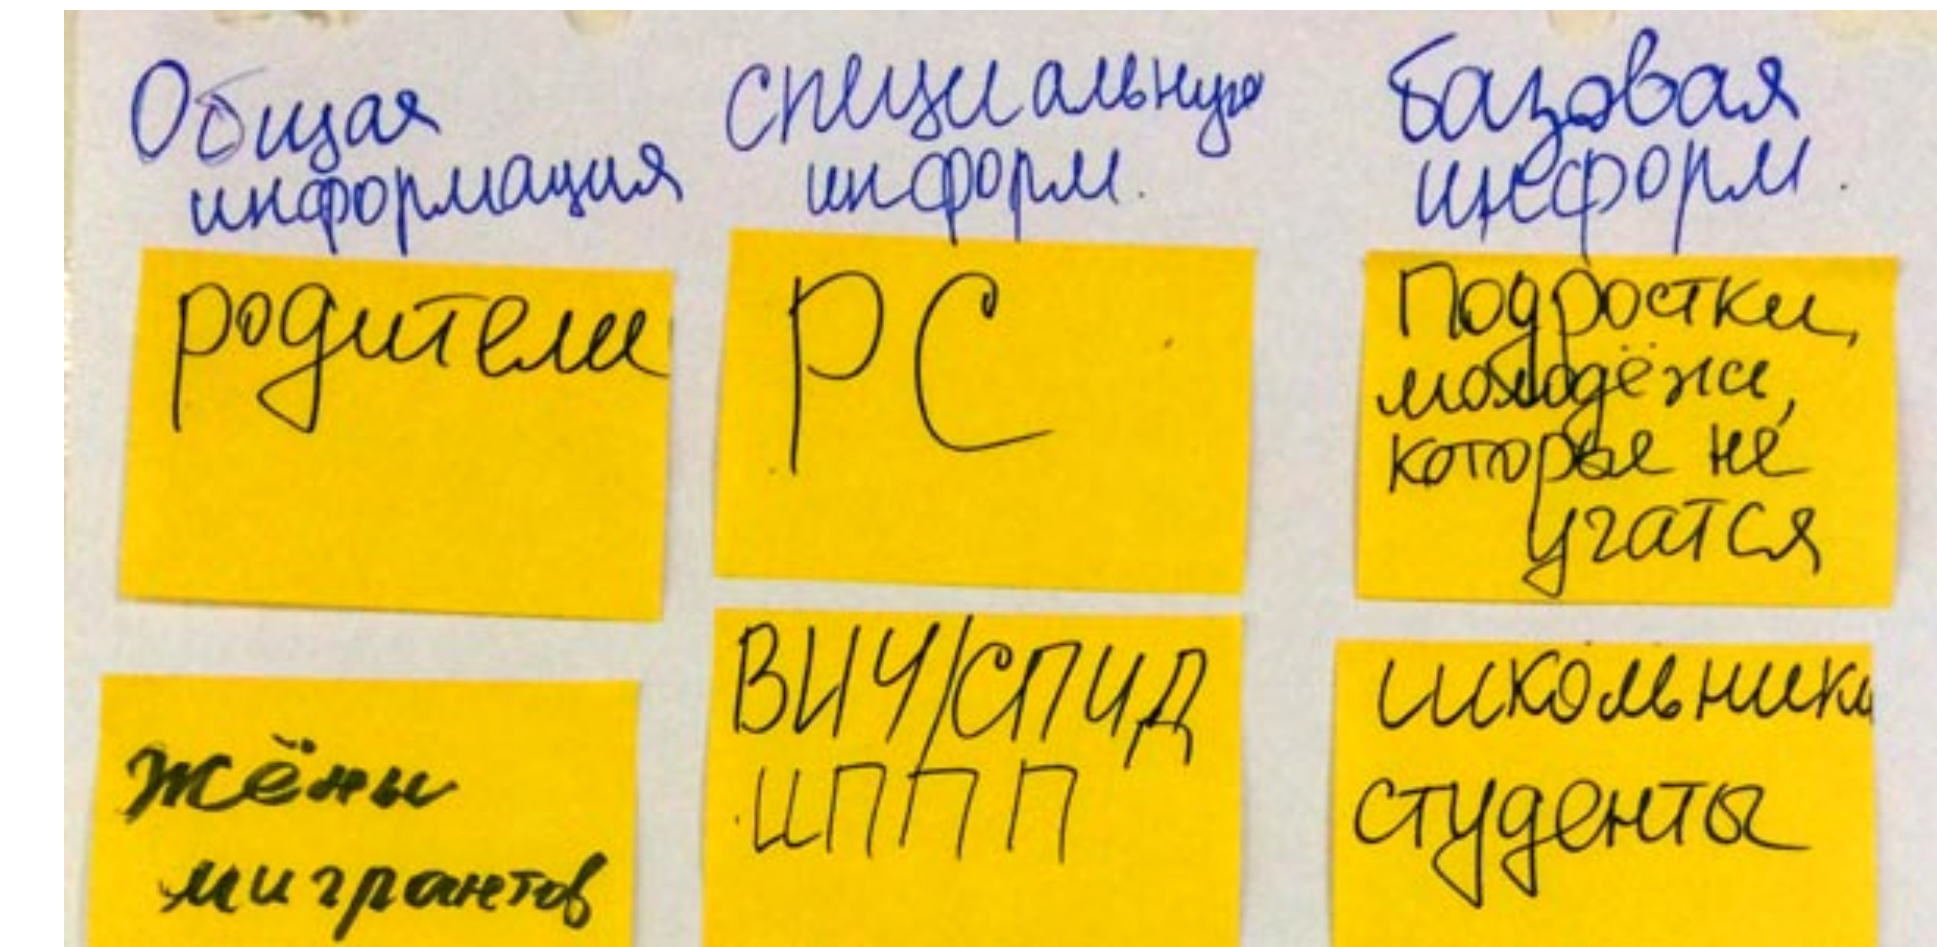 Общая
информация
родители
жёны
мигрантов
специальную
информ.
РС
ВИЧ/СПИД
ИППП
базовая
информ.
Подростки,
молодёжи,
которые не
учатся
школьники
студенты